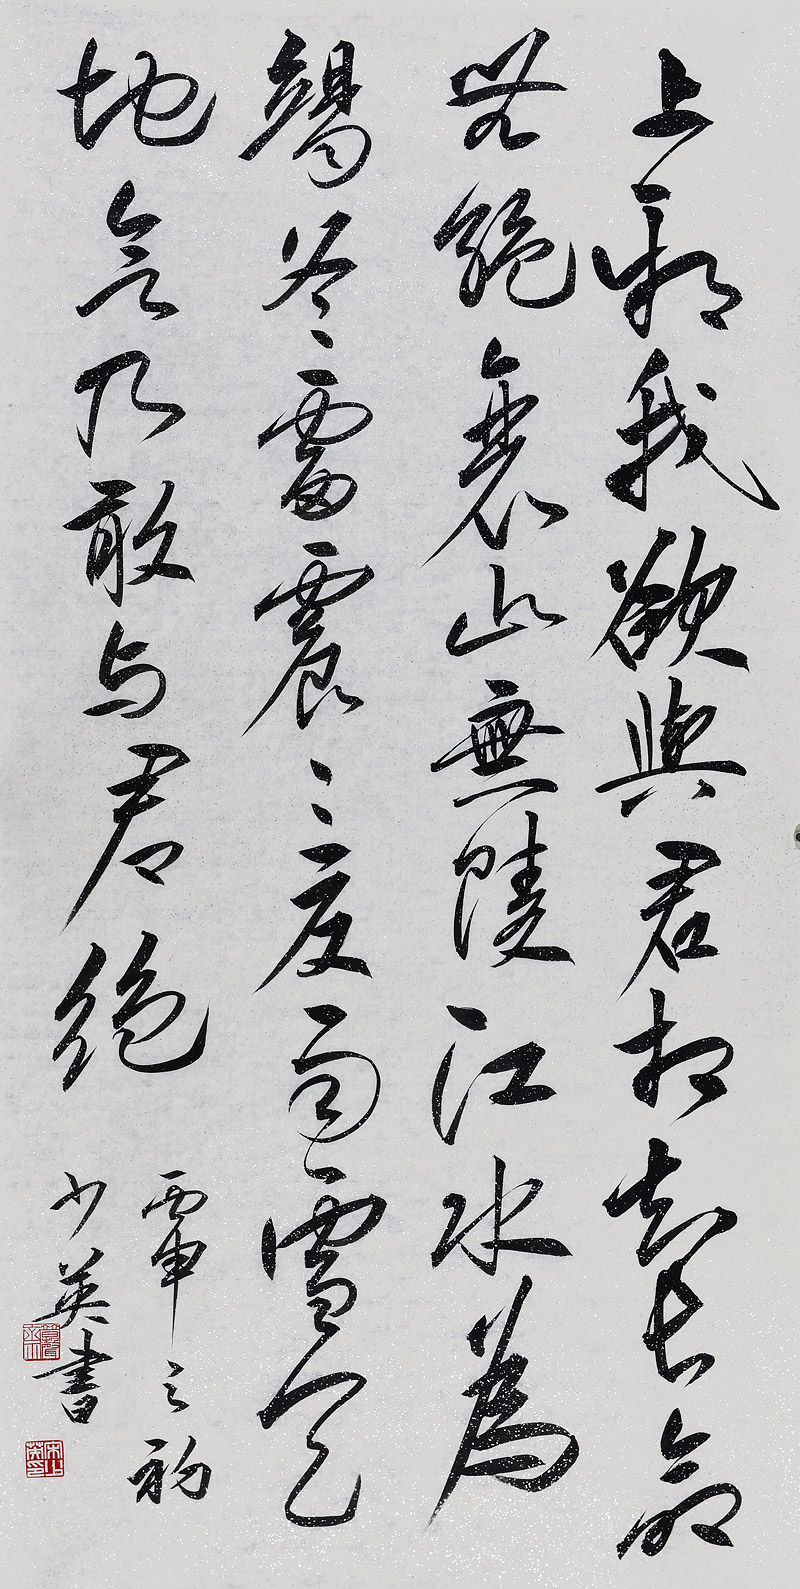 上邪我欲與君相知長命
無絕衰山無陵江水為
竭冬雷震々夏雨雪天
地合乃敢与君絕
丙申之初
少英書
宋少英印